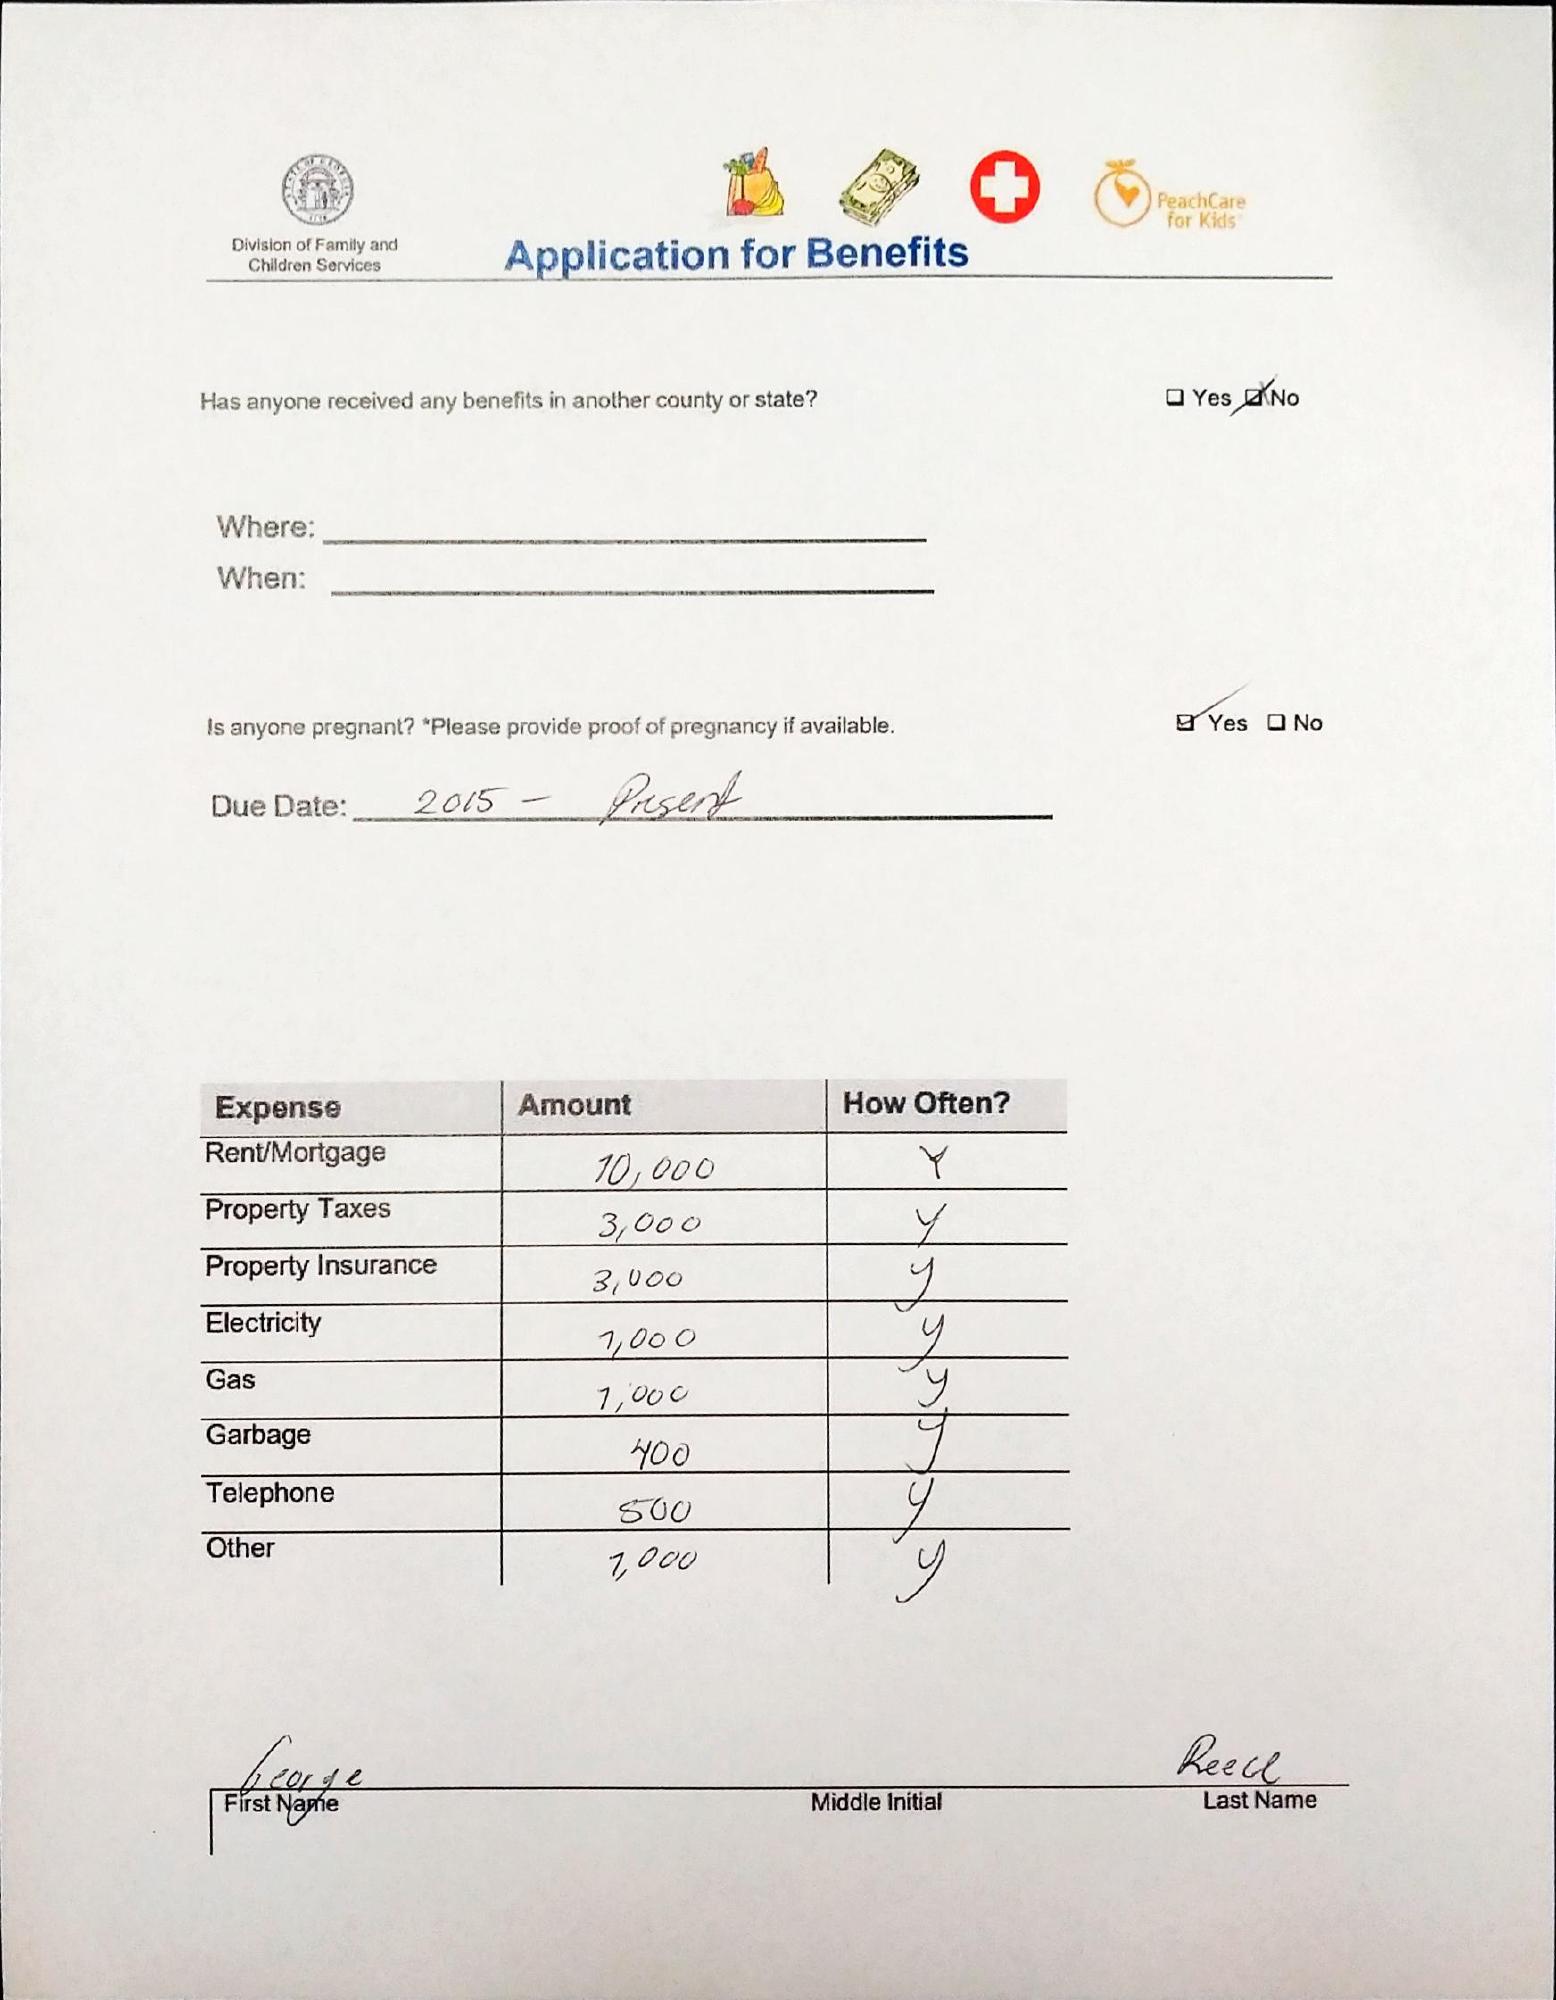 Division of Family and
Children Services
Application for Benefits
PeachCare
for Kids
Has anyone received any benefits in another county or state? ☐ Yes ☑ No
Where:
When:
Is anyone pregnant? *Please provide proof of pregnancy if available. ☑ Yes ☐ No
Due Date: 2015 - Present
Expense Amount How Often?
Rent/Mortgage 10,000 Y
Property Taxes 3,000 y
Property Insurance 3,000 y
Electricity 1,000 y
Gas 1,000 y
Garbage 400 y
Telephone 500 y
Other 1,000 y
George
First Name Middle Initial Last Name